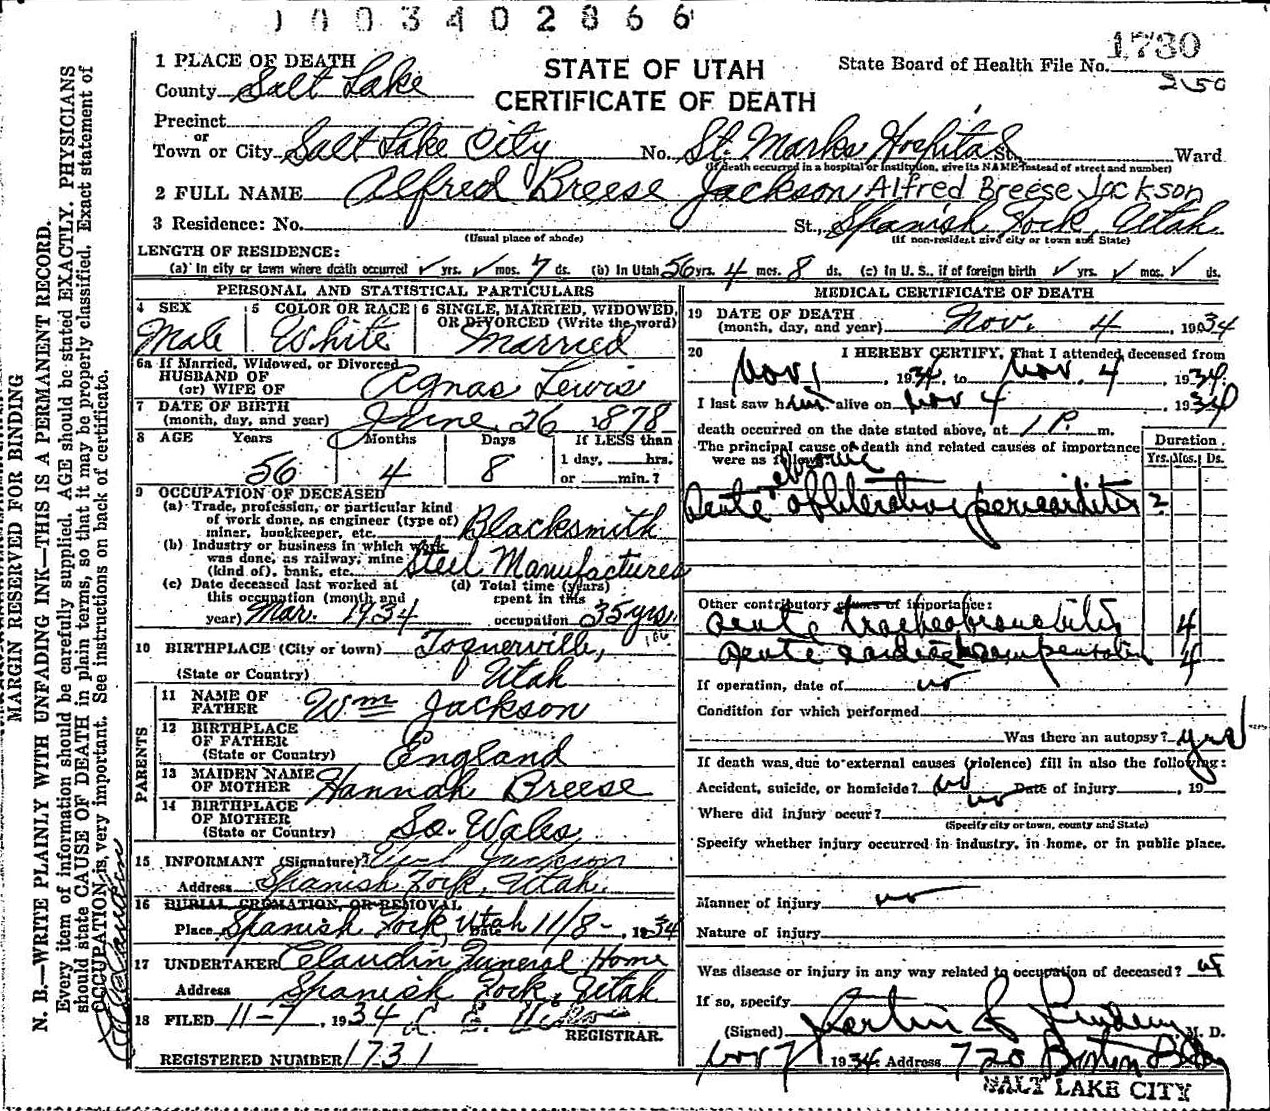 1003402866
1730
1 PLACE OF DEATH
STATE OF UTAH
State Board of Health File No.
2150
County Salt Lake
CERTIFICATE OF DEATH
Precinct
or
Town or City Salt Lake City No. St. Marks Hospital St. Ward
(If death occurred in a hospital or institution, give its NAME instead of street and number)
2 FULL NAME Alfred Breese Jackson Alfred Breese Jackson
3 Residence: No. St., Spanish Fork, Utah
(Usual place of abode) (If non-resident give city or town and State)
LENGTH OF RESIDENCE:
(a) In city or town where death occurred ✓ yrs. ✓ mos. 7 ds. (b) In Utah 56 yrs. 4 mos. 8 ds. (c) In U. S., if of foreign birth ✓ yrs. ✓ mos. ✓ ds.
PERSONAL AND STATISTICAL PARTICULARS
4 SEX 5 COLOR OR RACE 6 SINGLE, MARRIED, WIDOWED, OR DIVORCED (Write the word)
Male White Married
6a If Married, Widowed, or Divorced
HUSBAND OF
(or) WIFE OF Agnas Lewis
7 DATE OF BIRTH
(month, day, and year) June 26 1878
8 AGE Years Months Days If LESS than
1 day, hrs.
56 4 8 or min.?
9 OCCUPATION OF DECEASED
(a) Trade, profession, or particular kind
of work done, as engineer (type of)
miner, bookkeeper, etc. Blacksmith
(b) Industry or business in which work
was done, as railway, mine
(kind of), bank, etc. Steel Manufactures
(c) Date deceased last worked at
this occupation (month and
year) Mar. 1934
(d) Total time (years)
spent in this
occupation 35 yrs.
10 BIRTHPLACE (City or town) Toquerville,
(State or Country) Utah
PARENTS
11 NAME OF
FATHER Wm Jackson
12 BIRTHPLACE
OF FATHER
(State or Country) England
13 MAIDEN NAME
OF MOTHER Hannah Breese
14 BIRTHPLACE
OF MOTHER
(State or Country) So. Wales
15 INFORMANT (Signature) Jackson
Address Spanish Fork, Utah.
16 BURIAL, CREMATION, OR REMOVAL
Place Spanish Fork, Utah Date 11/8-, 1934
17 UNDERTAKER Claudin Funeral Home
Address Spanish Fork, Utah
18 FILED 11-7, 1934
REGISTRAR.
REGISTERED NUMBER 1731
MEDICAL CERTIFICATE OF DEATH
19 DATE OF DEATH
(month, day, and year) Nov. 4, 1934
20 I HEREBY CERTIFY, That I attended deceased from
Nov 1, 1934, to Nov. 4, 1934.
I last saw him alive on Nov 4, 1934
death occurred on the date stated above, at 1 P. m.
The principal cause of death and related causes of importance
were as follows:
Duration
Yrs. Mos. Ds.
Acute obliterative pericarditis ?
Other contributory causes of importance:
Acute tracheobronchitis 4
Acute cardiac decompensation 4
If operation, date of no
Condition for which performed
Was there an autopsy? yes
If death was due to external causes (violence) fill in also the following:
Accident, suicide, or homicide? no Date of injury , 19
Where did injury occur? no
(Specify city or town, county and State)
Specify whether injury occurred in industry, in home, or in public place.
Manner of injury no
Nature of injury
Was disease or injury in any way related to occupation of deceased?
If so, specify
(Signed) M. D.
Nov 7, 1934 Address 720 Boston Bldg
SALT LAKE CITY
MARGIN RESERVED FOR BINDING
N. B.—WRITE PLAINLY WITH UNFADING INK—THIS IS A PERMANENT RECORD.
Every item of information should be carefully supplied. AGE should be stated EXACTLY. PHYSICIANS
should state CAUSE OF DEATH in plain terms, so that it may be properly classified. Exact statement of
OCCUPATION is very important. See instructions on back of certificate.